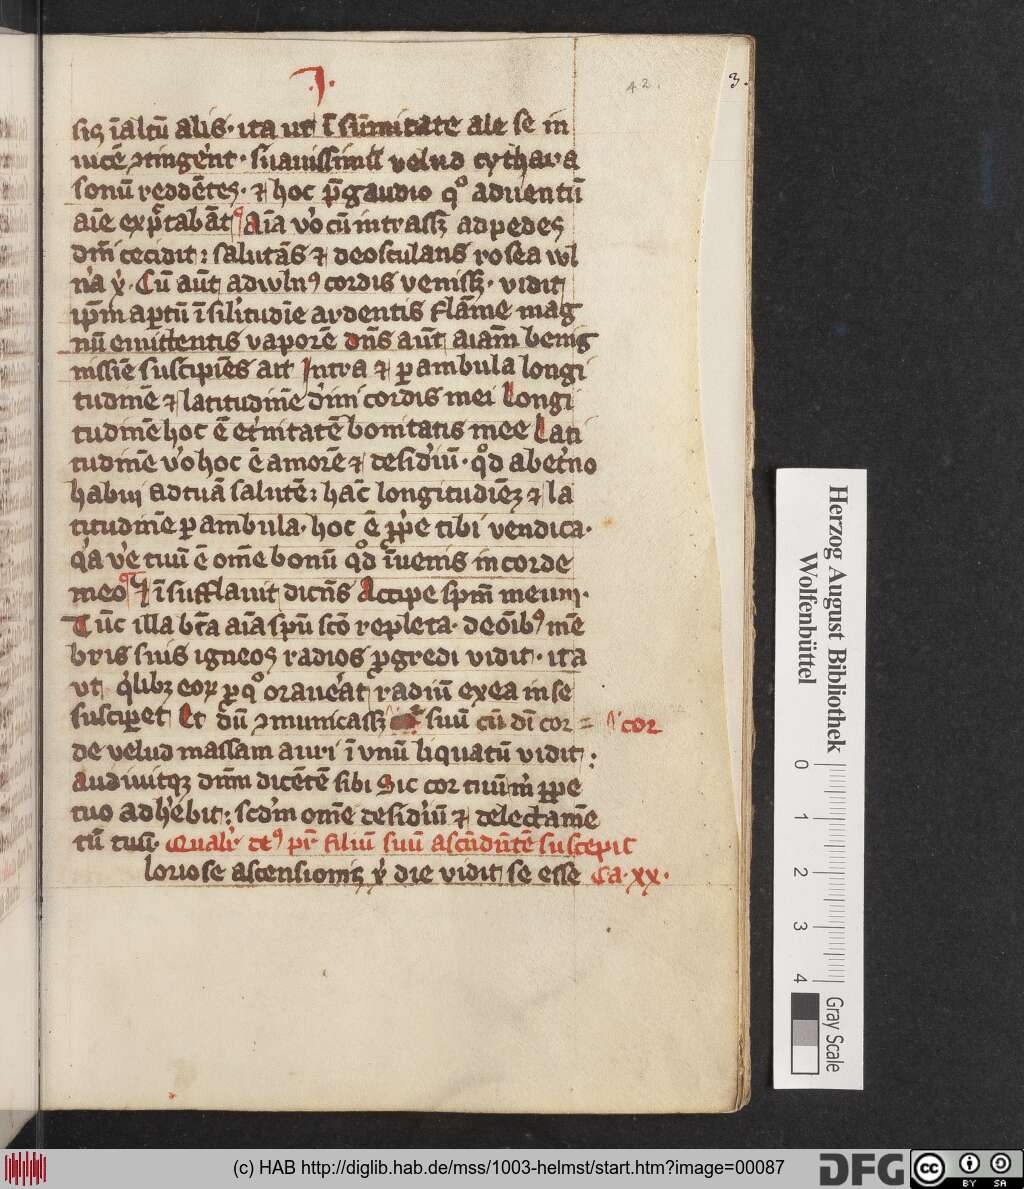 .I.
42.
3.
sis ī altū alis · ita ut ī sūmitate ale se in
uicē ꝯtingēnt · suauissimū velud cythara
sonū reddētes · ⁊ hoc p̄ gaudio qͦ aduentū
aīe exp̄ctabāt Aīa v̓o cū intrassꝫ ad pedes
dn̄i cecidit : salutās ⁊ deosculans rosea wl
n̓a x̓ · Cū aūt ad wlnꝰ cordis venissꝫ · vidit
ip̄m ap̄tū ī silitudīe ardentis flāme mag
nū emittentis vaporē dn̄s aūt aīam benig
nissīe suscipiēs ait Intra ⁊ ꝑambula longi
tudinē ⁊ latitudinē diuini cordis mei Longi
tudinē hoc ē et̓nitatē bonitatis mee Lati
tudinē v̓o hoc ē amorē ⁊ desid̓iū · qͦd ab et̓no
habui ad tuā salutē : hāc longitudiēꝫ ⁊ la
titudinē ꝑambula · hoc ē ꝓp̄e tibi vendica ·
q̓a v̓e tuū ē om̄e bonū qͦd īuenis in corde
meo ⁊ īsufflauit dicēs Accipe sp̄m meum ·
Tūc illa bt̄a aīa sp̄u sc̄o repleta · de oībꝰ mē
bris suis igneos radios ꝓgredi vidit · ita
vt q̓libꝫ eoꝝ ꝓ qͦ orauēat radiū ex ea in se
susciꝑet Et dū ꝯmunicassꝫ suū cū dī cor = cor
de velud massam auri ī vnū liquatū vidit :
audiuitqꝫ dn̄m dicētē sibi Sic cor tuū m̓ ꝑpe
tuo adh̓ebit : scdm om̄e desid̓iū ⁊ delectamē
tū tuū · Qualit̓ deꝰ pr̄ filiū suū ascēdētē suscepit
loriose ascensionis x̓ die vidit se esse Ca · xx ·
Herzog August Bibliothek
Wolfenbüttel
0 1 2 3 4
Gray Scale
(c) HAB http://diglib.hab.de/mss/1003-helmst/start.htm?image=00087
DFG
cc BY SA